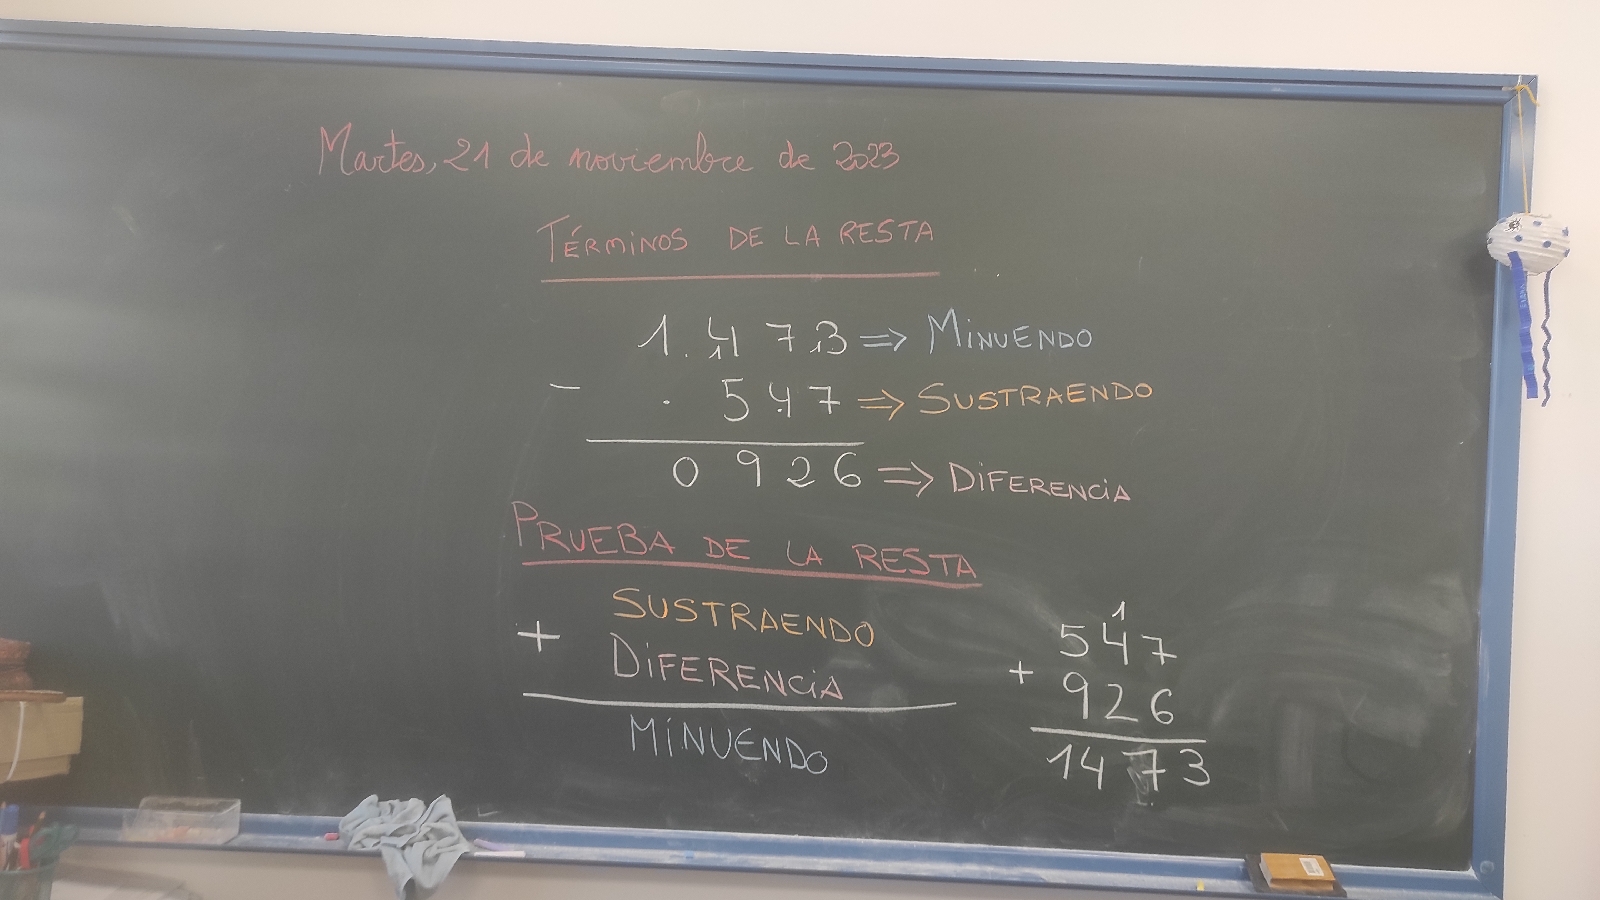 Martes, 21 de noviembre de 2023
TÉRMINOS DE LA RESTA
1.473 ⇒ MINUENDO
- . 547 ⇒ SUSTRAENDO
0926 ⇒ DIFERENCIA
PRUEBA DE LA RESTA
SUSTRAENDO
+ DIFERENCIA
MINUENDO
1
547
+ 926
1473